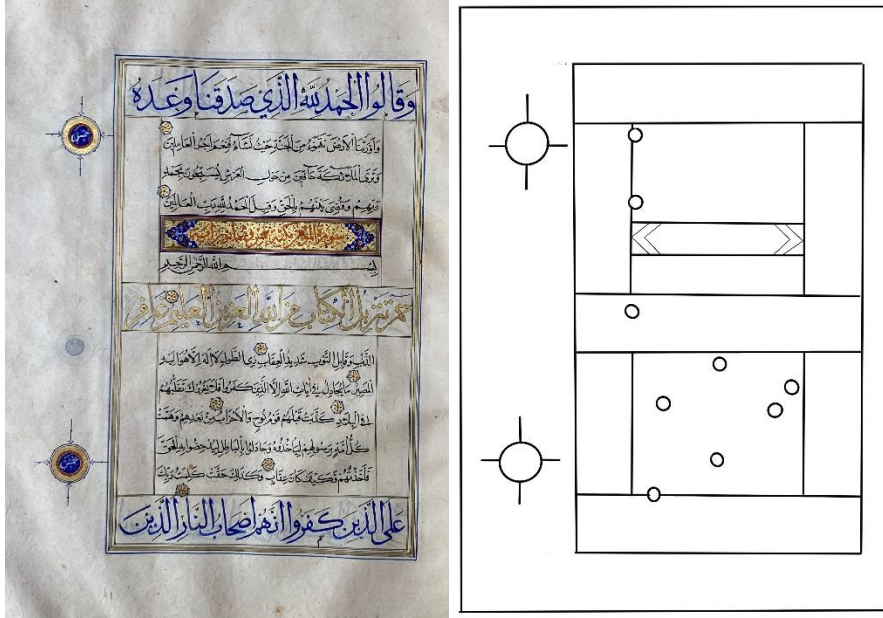 وَقَالُوا الْحَمْدُ لِلَّهِ الَّذِي صَدَقَنَا وَعْدَهُ
وَأَوْرَثَنَا الْأَرْضَ نَتَبَوَّأُ مِنَ الْجَنَّةِ حَيْثُ نَشَاءُ فَنِعْمَ أَجْرُ الْعَامِلِينَ
وَتَرَى الْمَلَائِكَةَ حَافِّينَ مِنْ حَوْلِ الْعَرْشِ يُسَبِّحُونَ بِحَمْدِ
رَبِّهِمْ وَقُضِيَ بَيْنَهُمْ بِالْحَقِّ وَقِيلَ الْحَمْدُ لِلَّهِ رَبِّ الْعَالَمِينَ
سورة المؤمن
بِسْمِ اللَّهِ الرَّحْمَنِ الرَّحِيمِ
حم تَنْزِيلُ الْكِتَابِ مِنَ اللَّهِ الْعَزِيزِ الْعَلِيمِ غَافِرِ
الذَّنْبِ وَقَابِلِ التَّوْبِ شَدِيدِ الْعِقَابِ ذِي الطَّوْلِ لَا إِلَهَ إِلَّا هُوَ إِلَيْهِ
الْمَصِيرُ مَا يُجَادِلُ فِي آيَاتِ اللَّهِ إِلَّا الَّذِينَ كَفَرُوا فَلَا يَغْرُرْكَ تَقَلُّبُهُمْ
فِي الْبِلَادِ كَذَّبَتْ قَبْلَهُمْ قَوْمُ نُوحٍ وَالْأَحْزَابُ مِنْ بَعْدِهِمْ وَهَمَّتْ
كُلُّ أُمَّةٍ بِرَسُولِهِمْ لِيَأْخُذُوهُ وَجَادَلُوا بِالْبَاطِلِ لِيُدْحِضُوا بِهِ الْحَقَّ
فَأَخَذْتُهُمْ فَكَيْفَ كَانَ عِقَابِ وَكَذَلِكَ حَقَّتْ كَلِمَتُ رَبِّكَ
عَلَى الَّذِينَ كَفَرُوا أَنَّهُمْ أَصْحَابُ النَّارِ الَّذِينَ